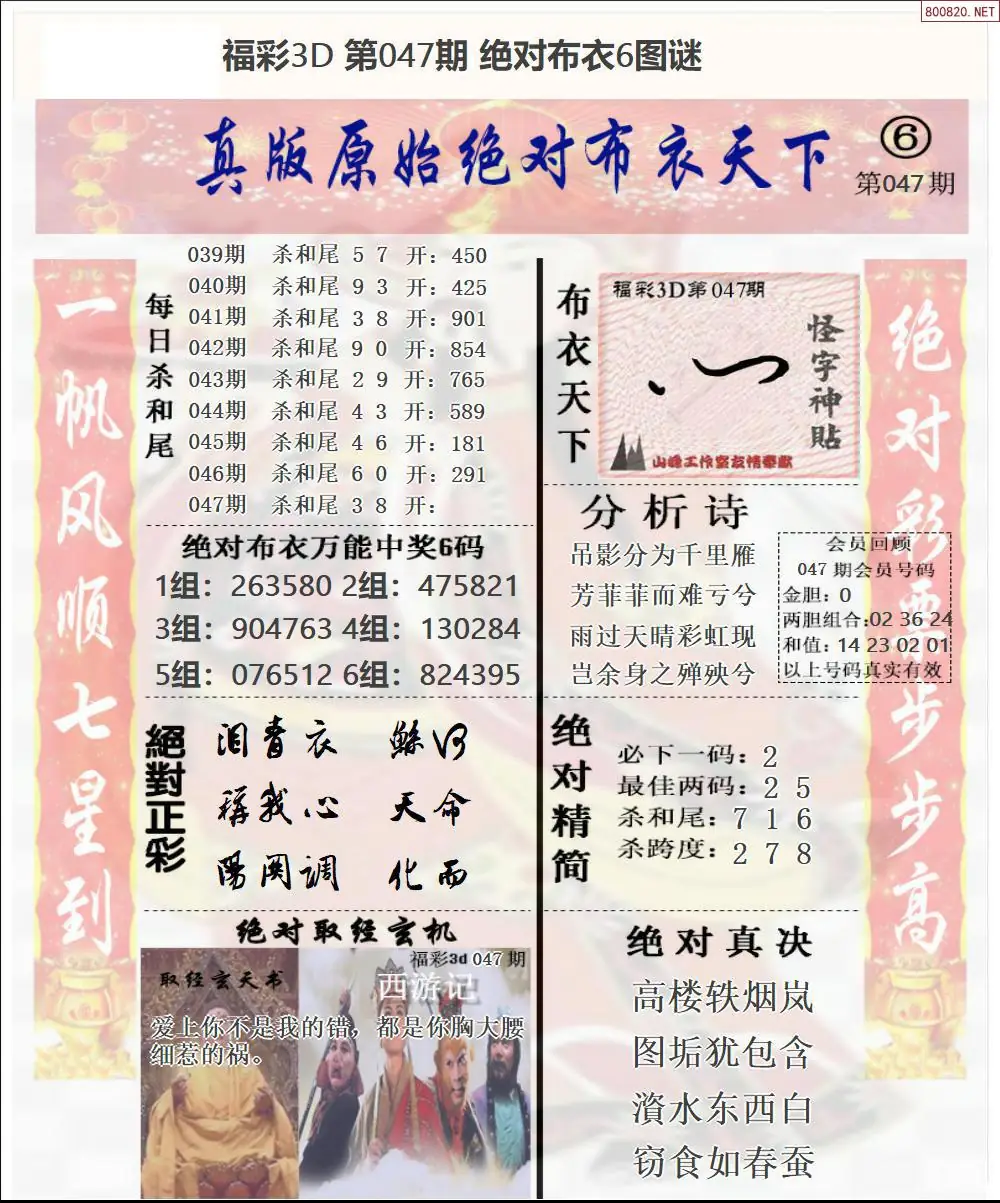 800820.NET
福彩3D 第047期 绝对布衣6图谜
真版原始绝对布衣天下
⑥
第047期
一帆风顺七星到
每日杀和尾
039期 杀和尾 5 7 开：450
040期 杀和尾 9 3 开：425
041期 杀和尾 3 8 开：901
042期 杀和尾 9 0 开：854
043期 杀和尾 2 9 开：765
044期 杀和尾 4 3 开：589
045期 杀和尾 4 6 开：181
046期 杀和尾 6 0 开：291
047期 杀和尾 3 8 开：
绝对布衣万能中奖6码
1组：263580 2组：475821
3组：904763 4组：130284
5组：076512 6组：824395
絕對正彩
泪青衣 鲧河
稱我心 天命
陽関调 化而
绝对取经玄机
福彩3d 047期
取经玄天书
西游记
爱上你不是我的错，都是你胸大腰
细惹的祸。
布衣天下
福彩3D第047期
怪字神貼
山峰工作室友情奉献
分析诗
吊影分为千里雁
芳菲菲而难亏兮
雨过天晴彩虹现
岂余身之殚殃兮
会员回顾
047期会员号码
金胆：0
两胆组合:02 36 24
和值：14 23 02 01
以上号码真实有效
绝对精简
必下一码：2
最佳两码：2 5
杀和尾：7 1 6
杀跨度：2 7 8
绝对真决
高楼轶烟岚
图垢犹包含
濱水东西白
窃食如春蚕
绝对彩票步步高